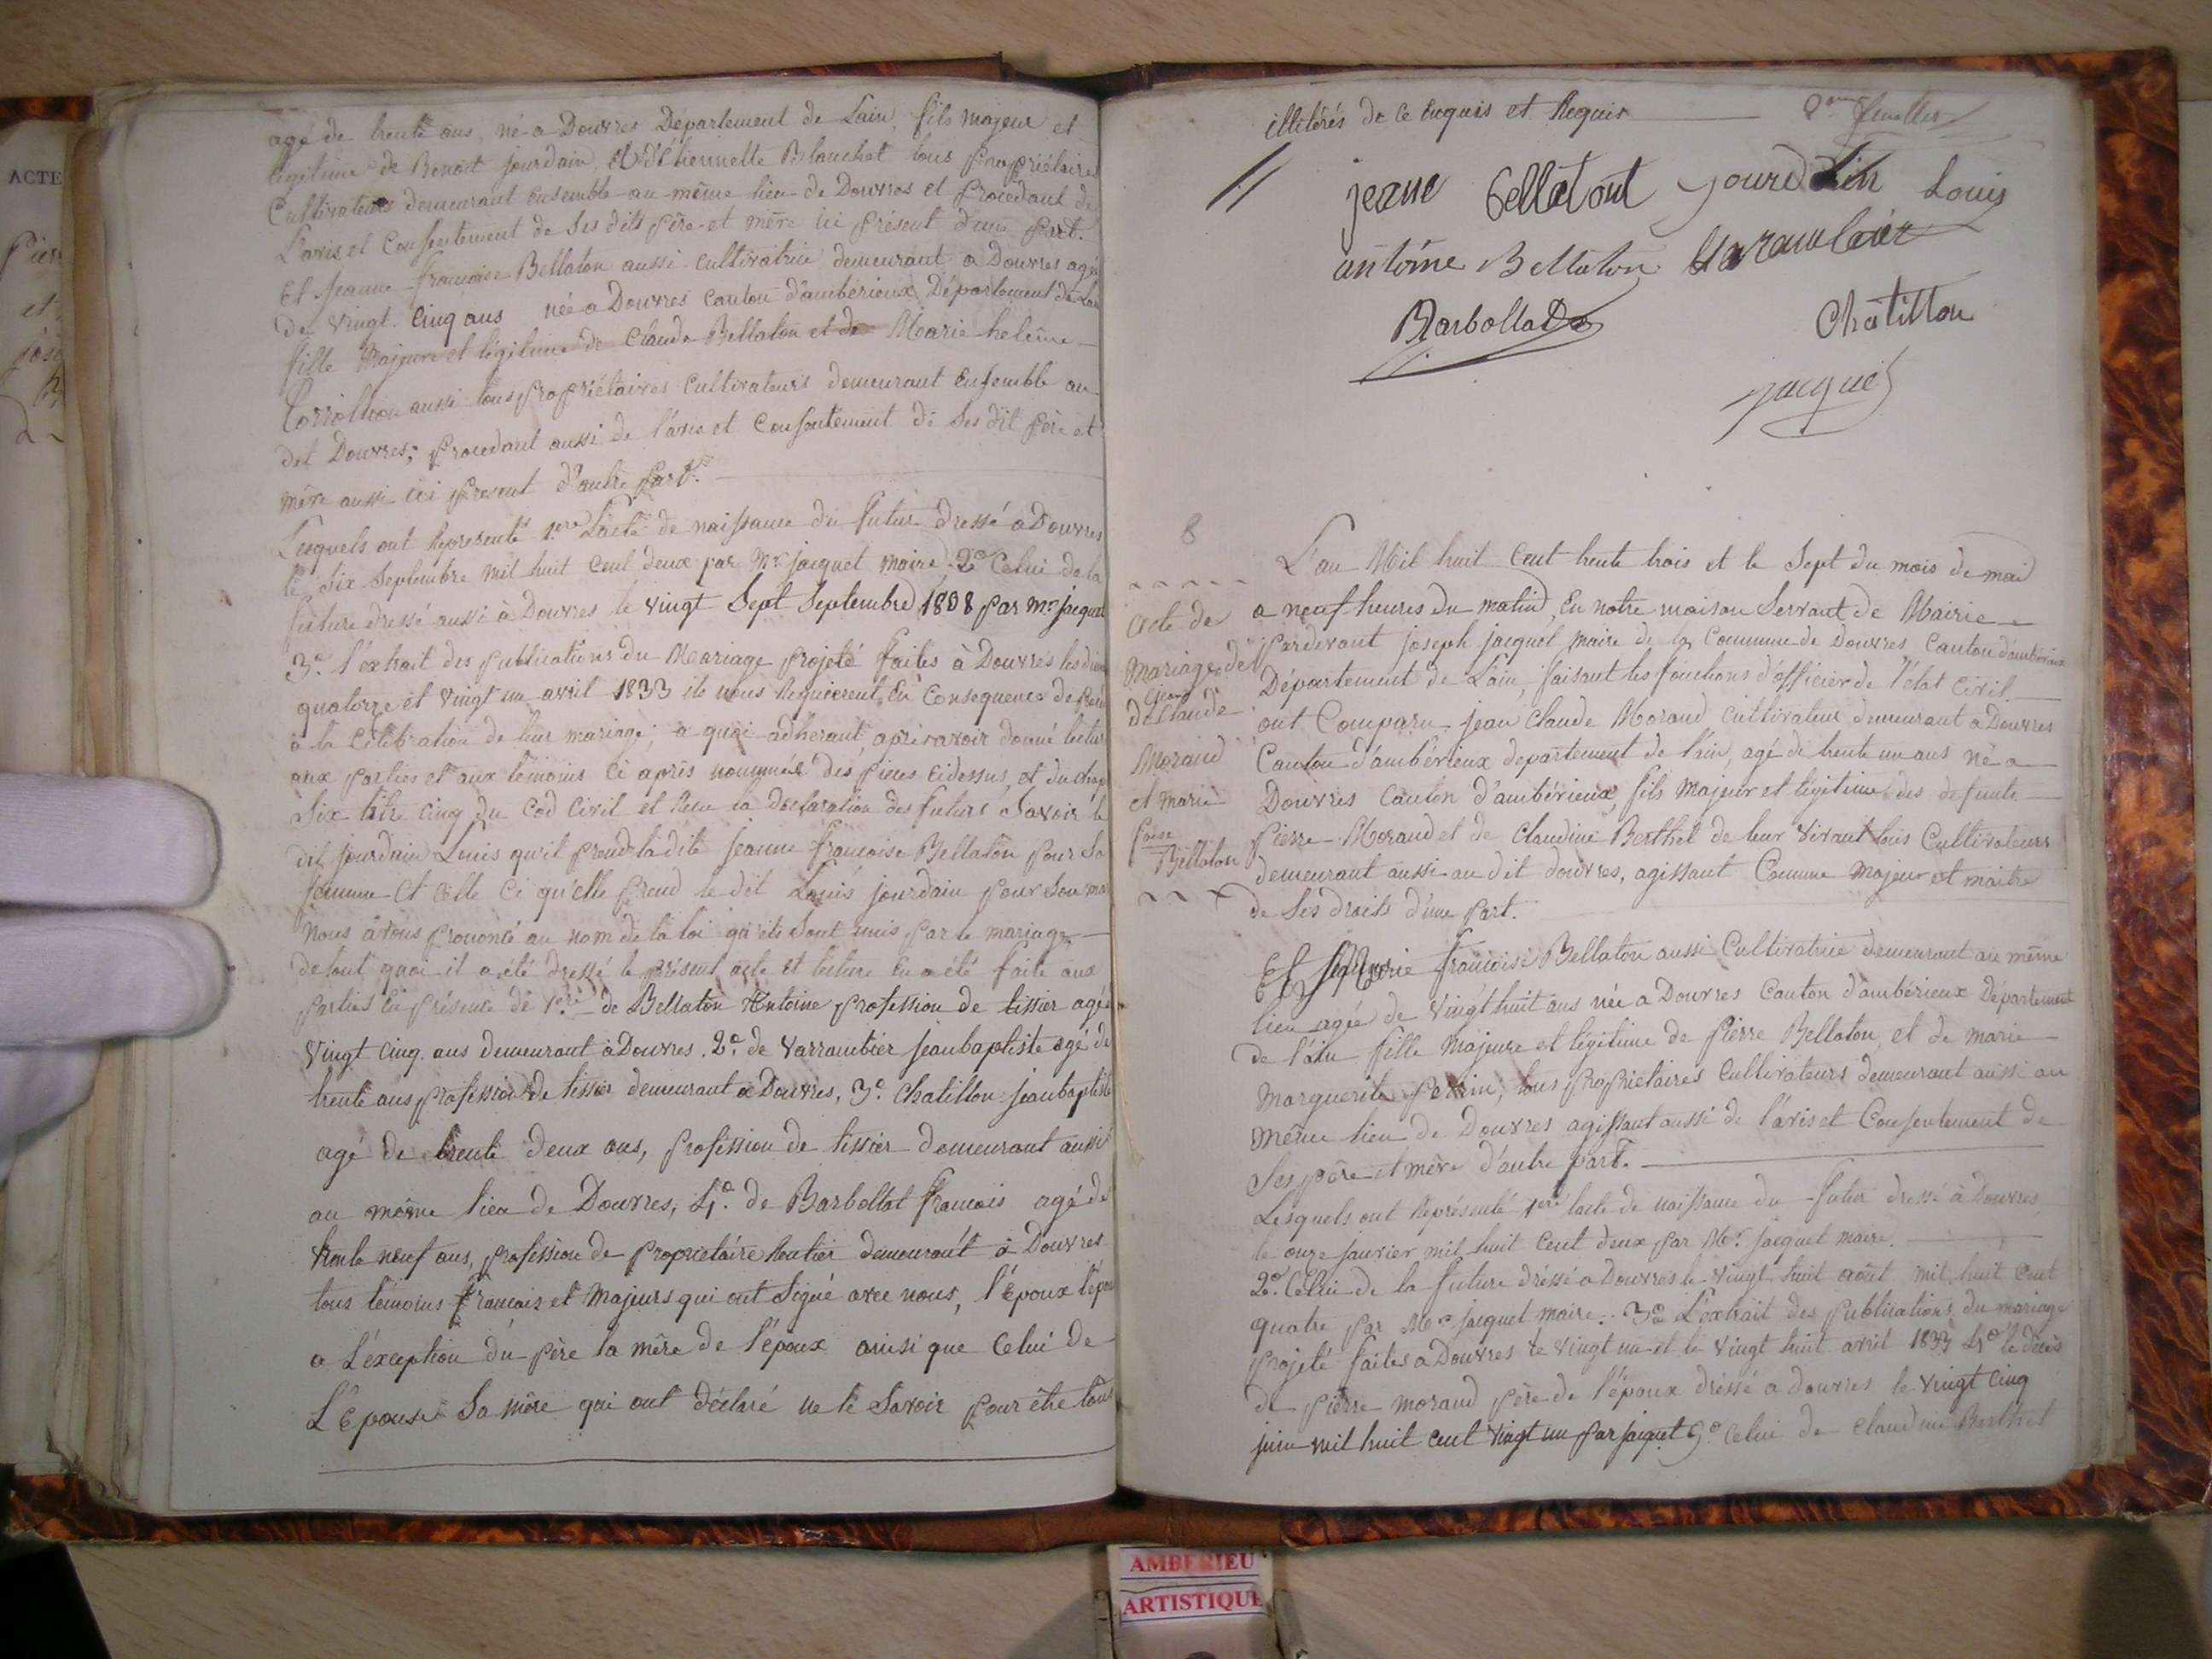 agé de trente ans, né a Douvres Département de Lain, fils majeur et
légitime de Benoit jourdain, et d'Etiennette Blanchet tous propriétaires
Cultivateurs demeurant ensemble au même lieu de Douvres et Procédant de
L'avis et Consentement de ses dits père et mère ici présent d'une part.
Et jeanne françoise Bellaton aussi cultivatrice demeurant a Douvres agée
de vingt cinq ans née a Douvres canton d'ambérieux Département de Lain
fille Majeure et légitime de Claude Bellaton et de Marie helène
aussi tous propriétaires cultivateurs demeurant Ensemble au
dit Douvres; procedant aussi de l'avis et Consentement de ses dit père et
mère aussi ici présent d'autre part.
Lesquels ont représenté 1ere L'acte de naissance du futur dressé a Douvres
le six Septembre mil huit cent deux par Mr jacquet maire. 2e Celui de la
future dressé aussi à Douvres le vingt Sept Septembre 1808 par mr jacquet
3e l'extrait des publications du Mariage projeté faites à Douvres les
quatorze et vingt un avril 1833 ils nous requierent En Consequence de
à la Célébration de leur mariage, a quoi adhérant, après avoir donné lecture
aux parties et aux témoins ci après nommés des pieces cidessus, et du chap
Six titre cinq du Cod Civil et Recu la déclaration des futurs Savoir le
dit jourdain Louis qu'il prend ladite jeanne françoise Bellaton pour Sa
femme et Celle Ci qu'elle prend le dit Louis jourdain pour son mari
nous avons prononcé au nom de la loi qu'ils sont unis par le mariage
de tout quoi il a été dressé le présent acte et lecture En a été faite aux
parties En présence de 1ere de Bellaton Antoine profession de tissier agé
vingt cinq ans demeurant à Douvres. 2e de Varrambier jeanbaptiste agé de
trente ans profession de tissier demeurant a Douvres, 3e Chatillon jeanbaptiste
agé de trente deux ans, profession de tissier demeurant aussi
au même lieu de Douvres, 4e de Barbollat françois agé de
trente neuf ans, profession de propriétaire Rentier demeurant à Douvres
tous témoins français et Majeurs qui ont Signé avec nous, l'Epoux l'épou
a L'éxception du père la mère de l'époux ainsi que Celui de
L'Epouse Sa mère qui ont déclaré ne le Savoir pour être tous
illitérés de ce Enquis et Requis
jeanne Bellatont jourdain Louis
antoine Bellaton Varambier
Barbollat Châtillon
jacquet
8
Acte de
mariage de
jean
Claude
Morand
et marie
foise
Bellaton
L'an Mil huit Cent trente trois et le Sept du mois de mai
a neuf heures du matin, En notre maison Servant de Mairie
pardevant joseph jacquet maire de la Commune de Douvres, Canton d'ambérieux
Département de Lain, faisant les fonctions d'officier de l'état civil
ont Comparu jean Claude Morand cultivateur demeurant a Douvres
Canton d'ambérieux departement de l'ain, agé de trente un ans né a
Douvres Canton d'ambérieux, fils majeur et légitime des defunts
Pierre Morand et de Claudine Berthet de leur vivant tous Cultivateurs
demeurant aussi au dit douvres, agissant Comme Majeur et maitre
de ses droits d'une part.
Et Marie françoise Bellaton aussi Cultivatrice demeurant au même
lieu agée de vingt huit ans née a Douvres Canton d'ambérieux Département
de l'ain fille Majeure et légitime de Pierre Bellaton, et de marie
Marguerite, tous propriétaires Cultivateurs demeurant aussi au
même lieu de Douvres agissant aussi de l'avis et Consentement de
Ses père et mère d'autre part.
Lesquels ont Représenté 1ere lacte de naissance du futur dressé à Douvres
le onze janvier mil huit Cent deux par Mr. jacquet maire.
2e Celui de la future dréssé a Douvres le vingt huit août mil huit cent
quatre par Mr jacquet maire. 3e L'extrait des publications du mariage
projeté faites a Douvres le vingt un et le vingt huit avril 1833 4e le décès
de pierre morand père de l'époux dréssé a douvres le vingt cinq
juin mil huit cent vingt un par jacquet 5e Celui de Claudine Berthet
AMBERIEU
ARTISTIQUE
ACTE